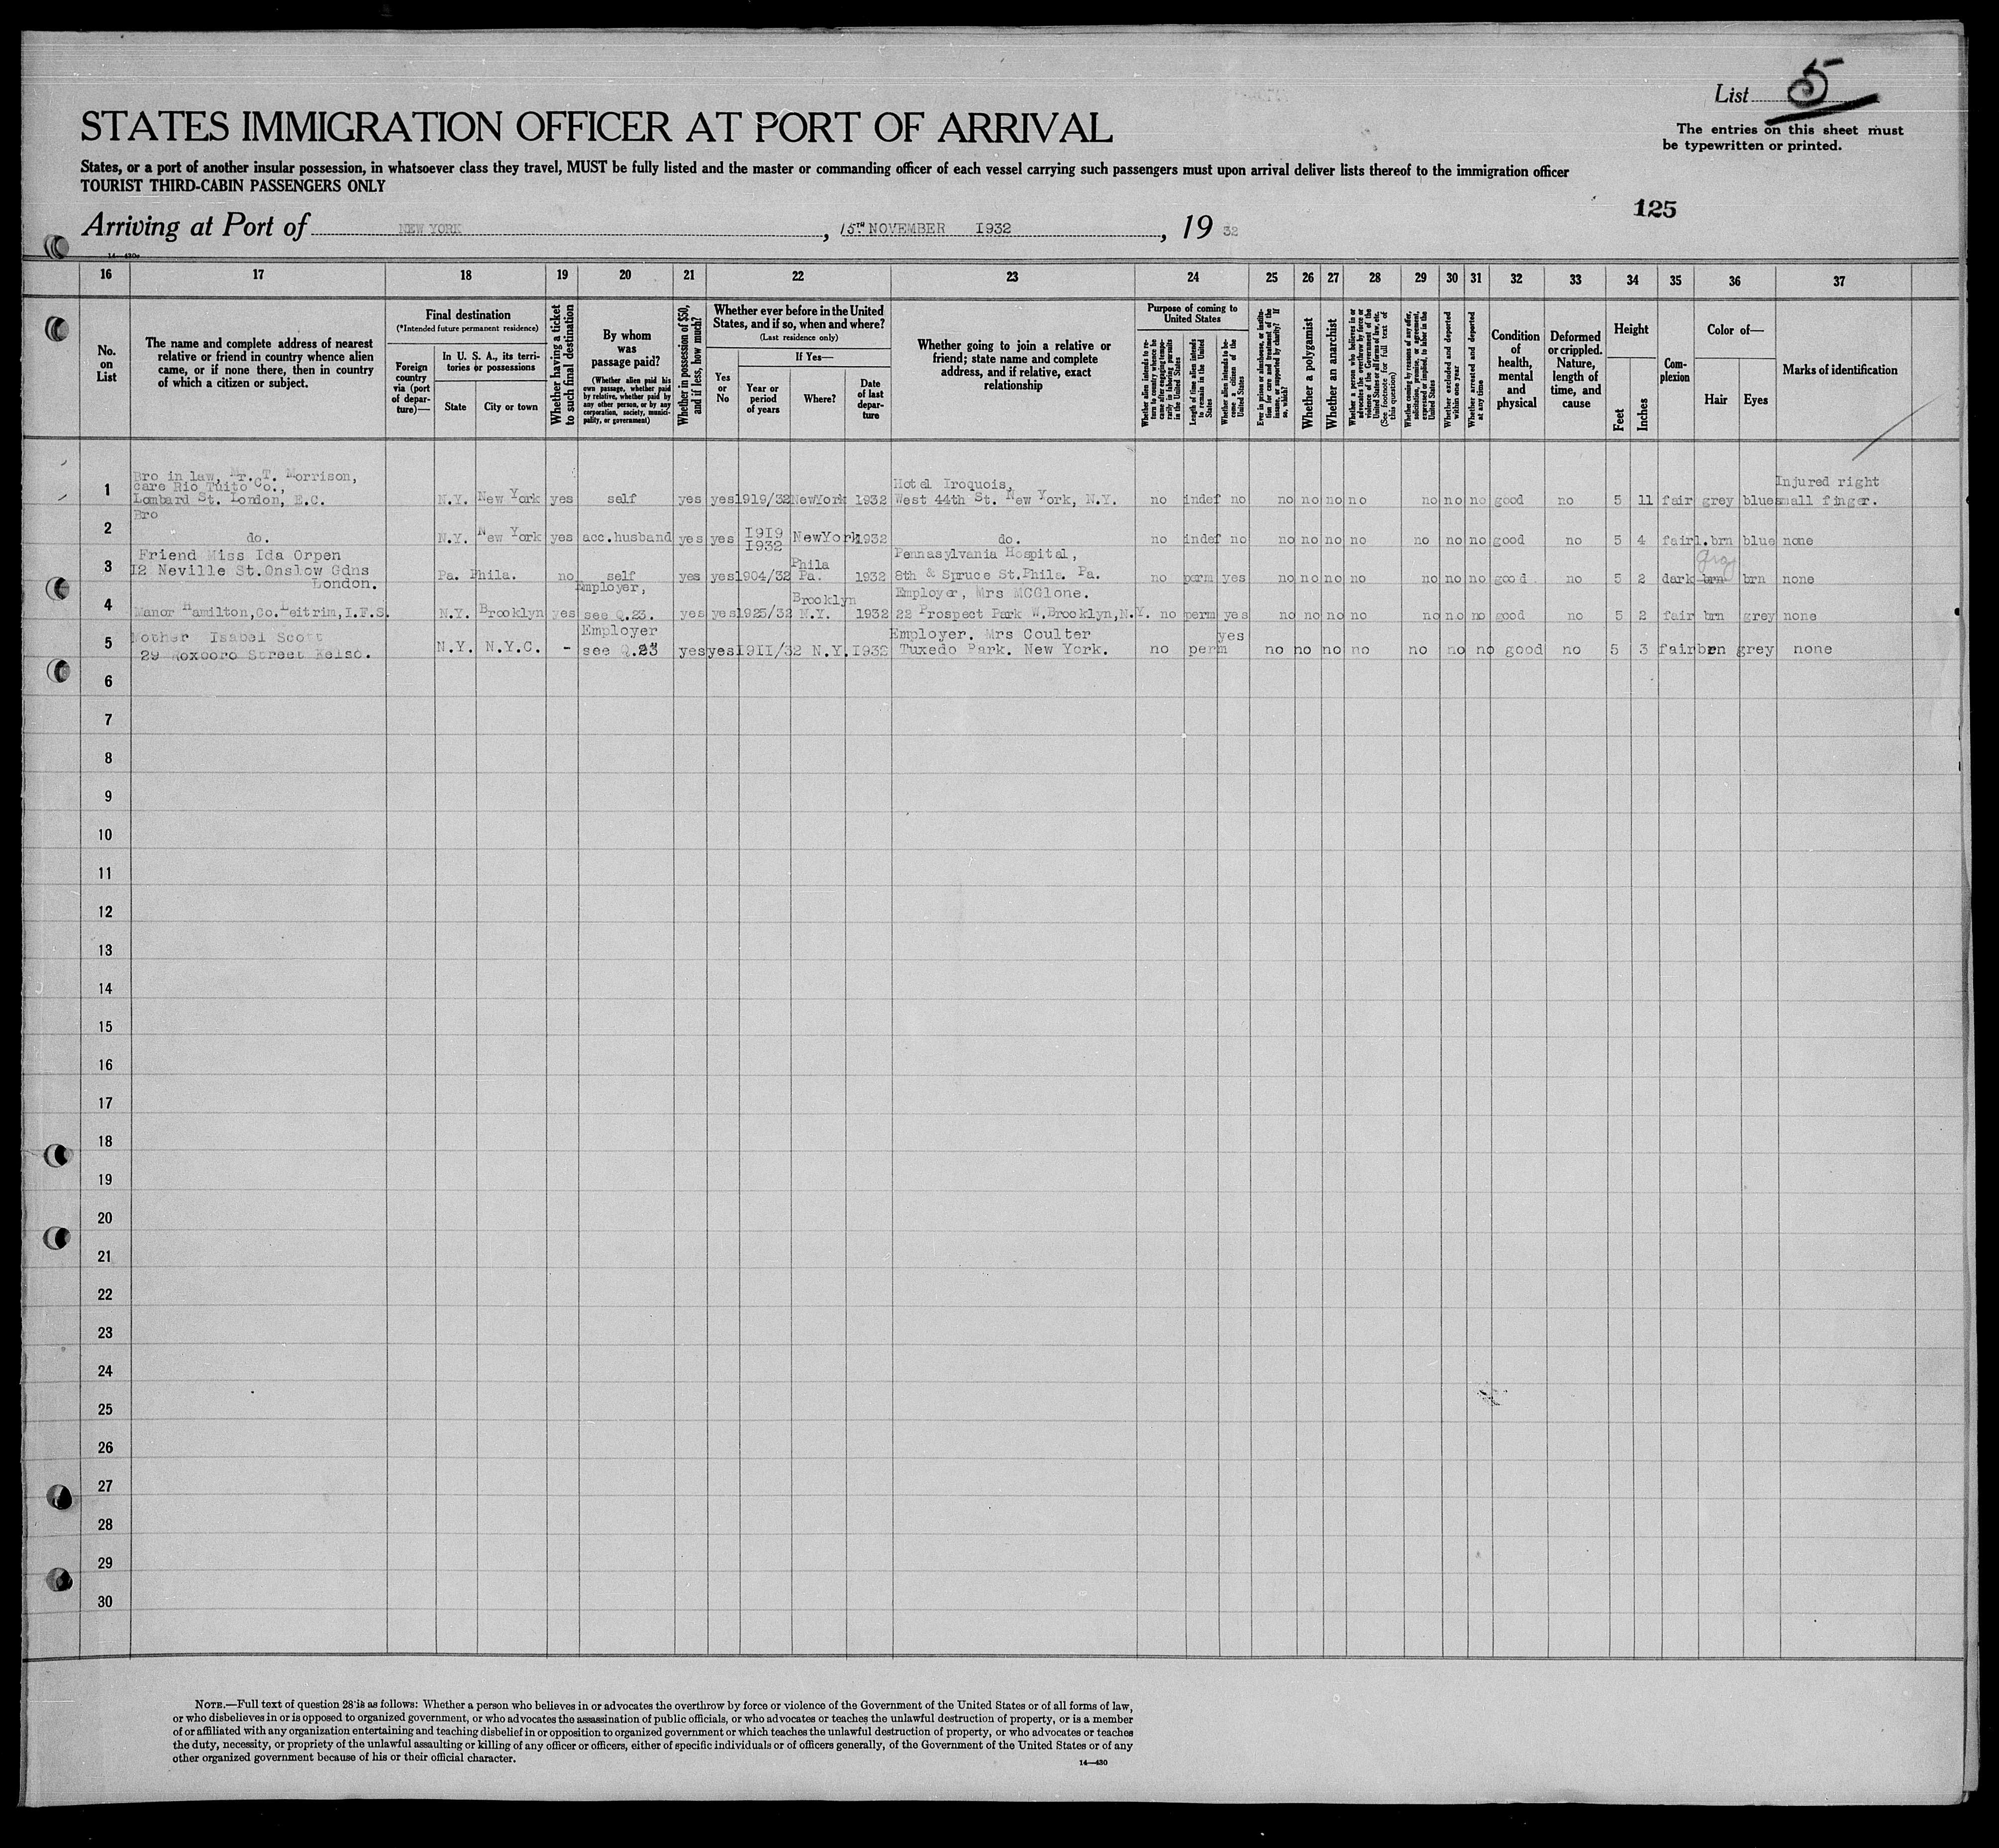 List 5
The entries on this sheet must
be typewritten or printed.
STATES IMMIGRATION OFFICER AT PORT OF ARRIVAL
States, or a port of another insular possession, in whatsoever class they travel, MUST be fully listed and the master or commanding officer of each vessel carrying such passengers must upon arrival deliver lists thereof to the immigration officer
TOURIST THIRD-CABIN PASSENGERS ONLY
125
Arriving at Port of NEW YORK, 15TH NOVEMBER 1932, 19 32
14—430
16 17 18 19 20 21 22 23 24 25 26 27 28 29 30 31 32 33 34 35 36 37
No. on List
The name and complete address of nearest
relative or friend in country whence alien
came, or if none there, then in country
of which a citizen or subject.
Final destination
(*Intended future permanent residence)
Foreign
country
via (port
of depar-
ture)—
In U. S. A., its terri-
tories or possessions
State
City or town
Whether having a ticket
to such final destination
By whom
was
passage paid?
(Whether alien paid his
own passage, whether paid
by relative, whether paid by
any other person, or by any
corporation, society, munici-
pality, or government)
Whether in possession of $50,
and if less, how much?
Whether ever before in the United
States, and if so, when and where?
(Last residence only)
Yes
or
No
If Yes—
Year or
period
of years
Where?
Date
of last
depar-
ture
Whether going to join a relative or
friend; state name and complete
address, and if relative, exact
relationship
Purpose of coming to
United States
Whether alien intends to re-
turn to country whence he
came after engaging tempo-
rarily in laboring pursuits
in the United States
Length of time alien intends
to remain in the United
States
Whether alien intends to be-
come a citizen of the
United States
Ever in prison or almshouse, or institu-
tion for care and treatment of the
insane, or supported by charity? If
so, which?
Whether a polygamist
Whether an anarchist
Whether a person who believes in or
advocates the overthrow by force or
violence of the Government of the
United States or all forms of law, etc.
(See footnote for full text of
this question)
Whether coming by reasons of any offer,
solicitation, promise, or agreement,
expressed or implied, to labor in the
United States
Whether excluded and deported
within one year
Whether arrested and deported
at any time
Condition
of
health,
mental
and
physical
Deformed
or crippled.
Nature,
length of
time, and
cause
Height
Feet
Inches
Com-
plexion
Color of—
Hair
Eyes
Marks of identification
1 Bro in law, Mr. T. Morrison,
care Rio Tuito Co.,
Lombard St. London, E.C. N.Y. New York yes self yes yes 1919/32 NewYork 1932 Hotel Iroquois,
West 44th St. New York, N.Y. no indef no no no no no no no no good no 5 11 fair grey blue Injured right
small finger.
Bro
2 do. N.Y. New York yes acc.husband yes yes 1919
1932 NewYork 1932 do. no indef no no no no no no no no good no 5 4 fair l.brn blue none
3 Friend Miss Ida Orpen
12 Neville St.Onslow Gdns
London. Pa. Phila. no self yes yes 1904/32 Phila
Pa. 1932 Pennasylvania Hospital,
8th & Spruce St.Phila. Pa. no perm yes no no no no no no no good no 5 2 dark brn gray brn none
4 Manor Hamilton,Co.Leitrim,I.F.S. N.Y. Brooklyn yes Employer,
see Q.23. yes yes 1925/32 Brooklyn
N.Y. 1932 Employer, Mrs MCGlone.
22 Prospect Park W.Brooklyn,N.Y. no perm yes no no no no no no no good no 5 2 fair brn grey none
5 Mother Isabel Scott
29 Roxboro Street Kelso. N.Y. N.Y.C. - Employer
see Q.23 yes yes 1911/32 N.Y. 1932 Employer. Mrs Coulter
Tuxedo Park. New York. no perm yes no no no no no no no good no 5 3 fair brn grey none
6
7
8
9
10
11
12
13
14
15
16
17
18
19
20
21
22
23
24
25
26
27
28
29
30
NOTE.—Full text of question 28 is as follows: Whether a person who believes in or advocates the overthrow by force or violence of the Government of the United States or of all forms of law,
or who disbelieves in or is opposed to organized government, or who advocates the assassination of public officials, or who advocates or teaches the unlawful destruction of property, or is a member
of or affiliated with any organization entertaining and teaching disbelief in or opposition to organized government or which teaches the unlawful destruction of property, or who advocates or teaches
the duty, necessity, or propriety of the unlawful assaulting or killing of any officer or officers, either of specific individuals or of officers generally, of the Government of the United States or of any
other organized government because of his or their official character.
14—430